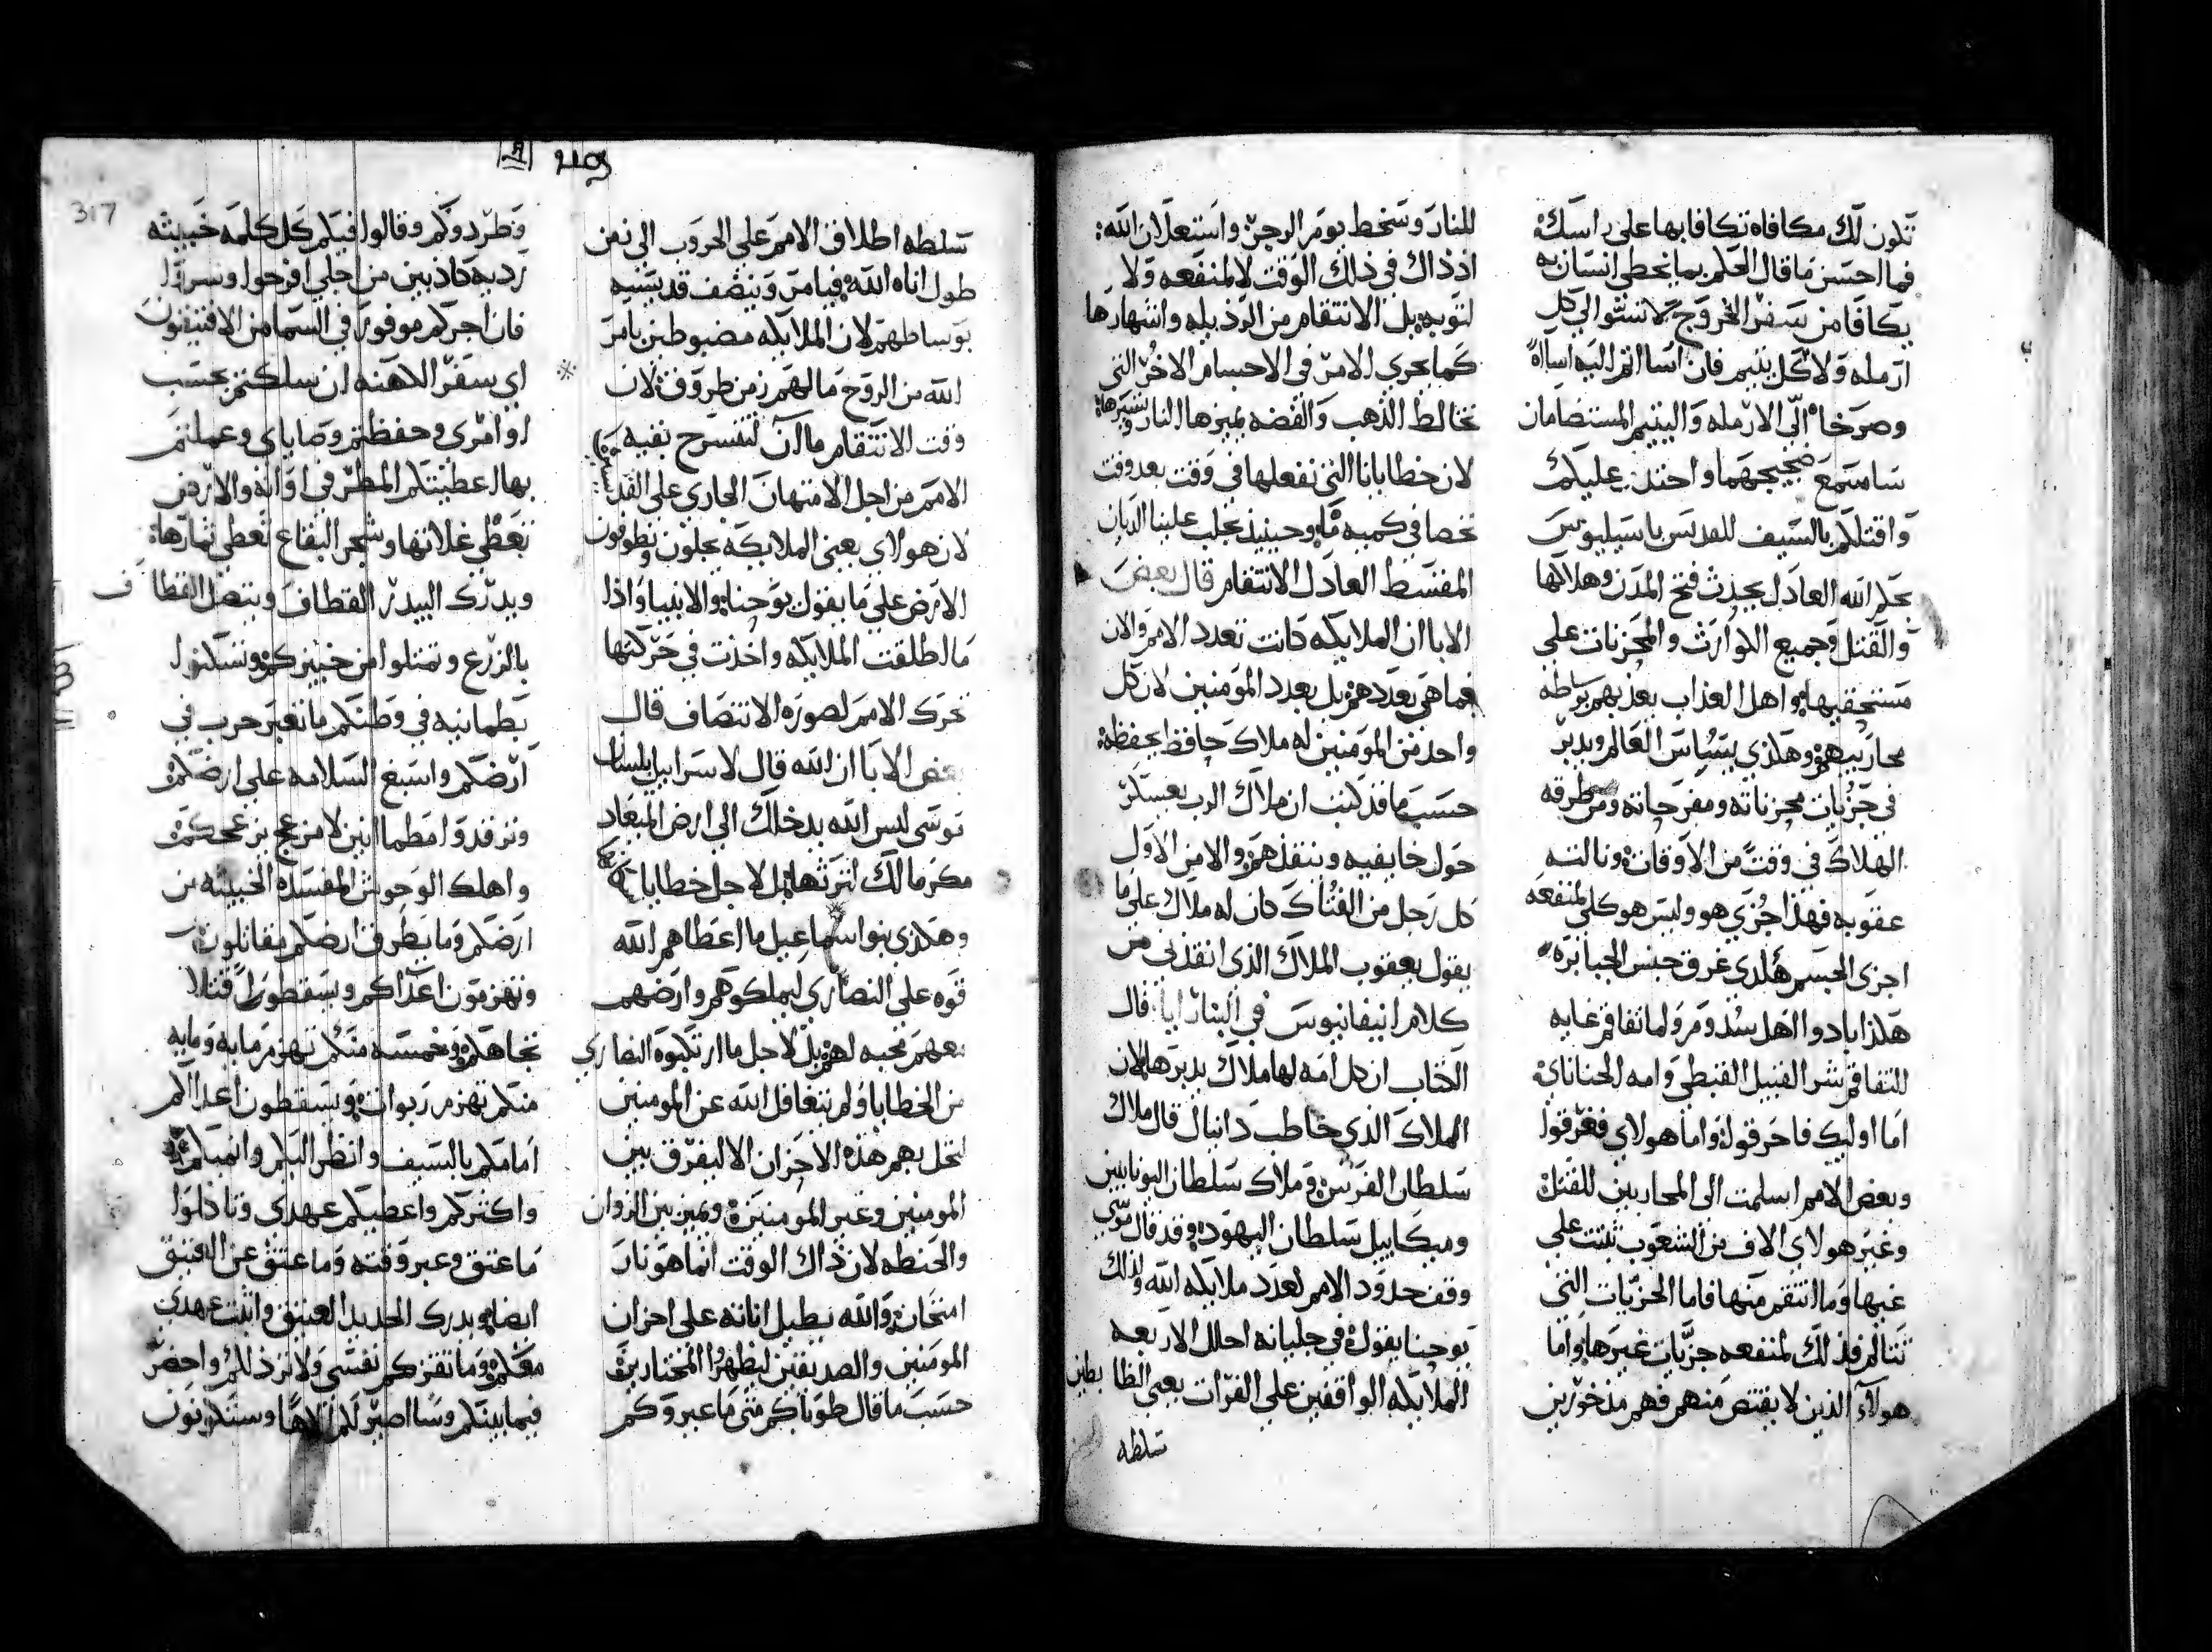 تكون لك مكافاه تكافا بها على راسك
فما احسن ما قال الحكم بما يخطى انسان به
يكافا من سفر الخروج لا تستوا الى كل
ارمله ولا كل يتيم فان اسااتم اليه اساه
وصرخا الى الارمله واليتيم المستضامان
ساسمع ضجيجهما واحتد عليكم
واقتلكم بالسيف للقديس باسيليوس
بحكم الله العادل يحدث فتح المدن وهلاكها
والقتل وجميع الكوارث والمحزنات على
مستحقيها واهل العذاب يعذبهم بواسطه
محاربيهم وهكذى يسياس العالم ويدبر
فى جزيات محزناته ومفرحاته ومن طرقه
الهلاك فى وقت من الاوقات ونالته
عقوبه فهذا جزى هو وليس هو كلى لمنفعه
اجزى الجسم هكذى غرق جنس الجبابره
هكذا بادوا اهل سدوم ولما تفاقم غايه
التفاقم شر القبيل القبطى وامه الحنانى
اما اوليك فاحرقوا واما هولاى فغرقوا
وبعض الامم اسلمت الى المحاربين للقتل
وغير هولاى الاف من الشعوب ثبتت على
غيها وما انتقم منها فاما الجزيات التى
تتالم فذلك لمنفعه جزيات غيرها واما
هولاء الذين لا يقتص منهم فهم مذخورين
للنار وسخط يوم الرجز واستعلان الله
اذ ذاك فى ذلك الوقت لا لمنفعه ولا
لتوبه بل الانتقام من الرذيله وانتهارها
كما يجرى الامر فى الاجسام الاخر التى
تخالط الذهب والفضه يميزها النار وتسيرها
لان خطايانا التى نفعلها فى وقت بعد وقت
تحصا فى كميه ما وحينيذ يجلب علينا الديان
المقسط العادل الانتقام قال بعض
الابا ان الملايكه كانت تعدد الامم والان
فما هى بعددهم بل بعدد المومنين لان كل
واحد من المومنين له ملاك حافظ يحفظه
حسب ما قد كتب ان ملاك الرب يعسكر
حول خايفيه وينقذهم والامر الاول
كل رجل من الفتاك كان له ملاك على ما
يقول يعقوب الملاك الذى انقذنى من
كلام ابيفانيوس فى البنارايا قال
الكتاب ان كل امه لها ملاك يدبرها لان
الملاك الذى خاطب دانيال قال ملاك
سلطان الفرس وملاك سلطان اليونانيين
وميكاييل سلطان اليهود وقد قال موسى
وقف حدود الامم لعدد ملايكه الله وكذلك
يوحنا يقول فى جليانه احلل الاربعه
الملايكه الواقفين على الفرات يعنى الظابطين
سلطه
317
سلطه اطلاق الامم على الحروب الى زمن
طول اناه الله فيامر وينصف قديسيه
بوساطهم لان الملايكه مضبوطين بامر
الله من الروح ما لهم زمن طروق لان
وقت الانتقام ما ان لتنسرح بقيه
الامم من اجل الامتهان الجارى على القديسين
لان هولاى يعنى الملايكه يجلون ويطوفون
الارض على ما يقول يوحنا والانبيا واذا
ما اطلقت الملايكه واخذت فى حركتها
تحرك الامم لصوره الانتصاف قال
بعض الابا ان الله قال لاسراييل بلسان
موسى ليس الله يدخلك الى ارض الميعاد
مكرما لك لترثها بل لاجل خطايا
وهكذى بنوا اسماعيل ما اعطاهم الله
قوه على النصارى ليملكوهم وارضهم
معهم محبه لهم بل لاجل ما ارتكبوه النصارى
من الخطايا ولم يتغافل الله عن المومنين
لتحل بهم هذه الاحزان الا ليفرق بين
المومنين وغير المومنين ويميز بين الزوان
والحنطه لان ذاك الوقت انما هو نار
امتحان والله يطيل اناته على احزان
المومنين والصديقين ليظهروا المختارين
حسب ما قال طوباكم متى ما عيروكم
وطردوكم وقالوا فيكم كل كلمه خبيثه
رديه كاذبين من اجلى افرحوا وسروا
فان اجركم موفور فى السما من الافتيتون
اى سفر الكهنه ان سلكتم بحسب
اوامرى وحفظتم وصاياى وعملتم
بها اعطيتكم المطر فى اوانه والارض
تعطى غلاتها وشجر البقاع تعطى ثمارها
ويدرك البيدر القطاف ويتصل القطاف
بالزرع وتمتلوا من خبزكم وتسكنوا
بطمانيه فى وطنكم ما تعبر حرب فى
ارضكم واسبغ السلامه على ارضكم
وترقدوا مطمانين لا مزعج يزعجكم
واهلك الوحوش المفسده الخبيثه من
ارضكم وما يطرق ارضكم مقاتلون
وتهزمون اعداكم ويسقطون قتلا
تجاهكم وخمسه منكم تهزم مايه ومايه
منكم تهزم ربوات ويسقطون اعداكم
امامكم بالسيف وانظر اليكم وانميكم
واكثركم واعطيكم عهدى وتاكلوا
ما عتق وعبر وقته وما عتق عن العتيق
ايضا ويدرك الجديد العتيق واثبت عهدى
معكم وما تقززكم نفسى ولا ترذلكم واحضر
فيما بينكم وسااصير لكم الاها وستكونون